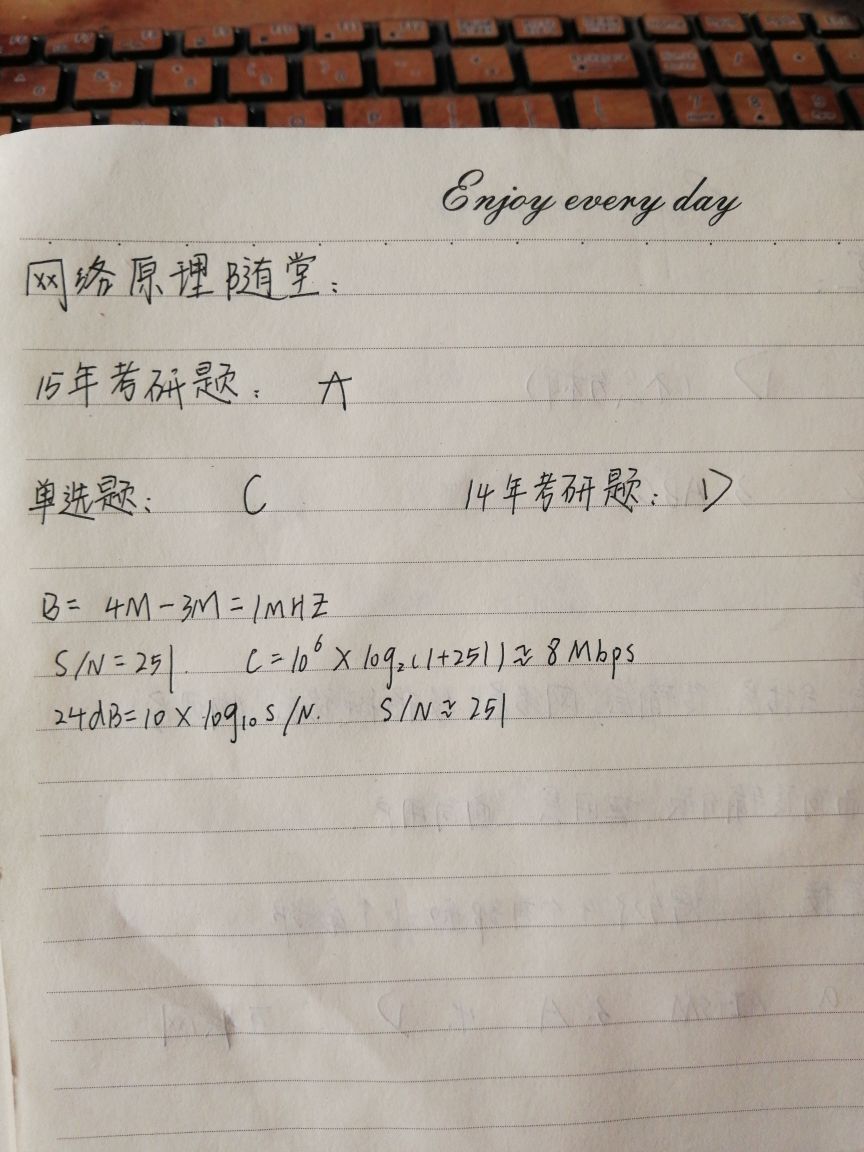 Enjoy every day
网络原理随堂：
15年考研题： A
单选题： C 14年考研题： D
B= 4M-3M=1MHZ
S/N=251. C=10⁶×log₂(1+251)≈8Mbps
24dB=10×log₁₀S/N. S/N≈251